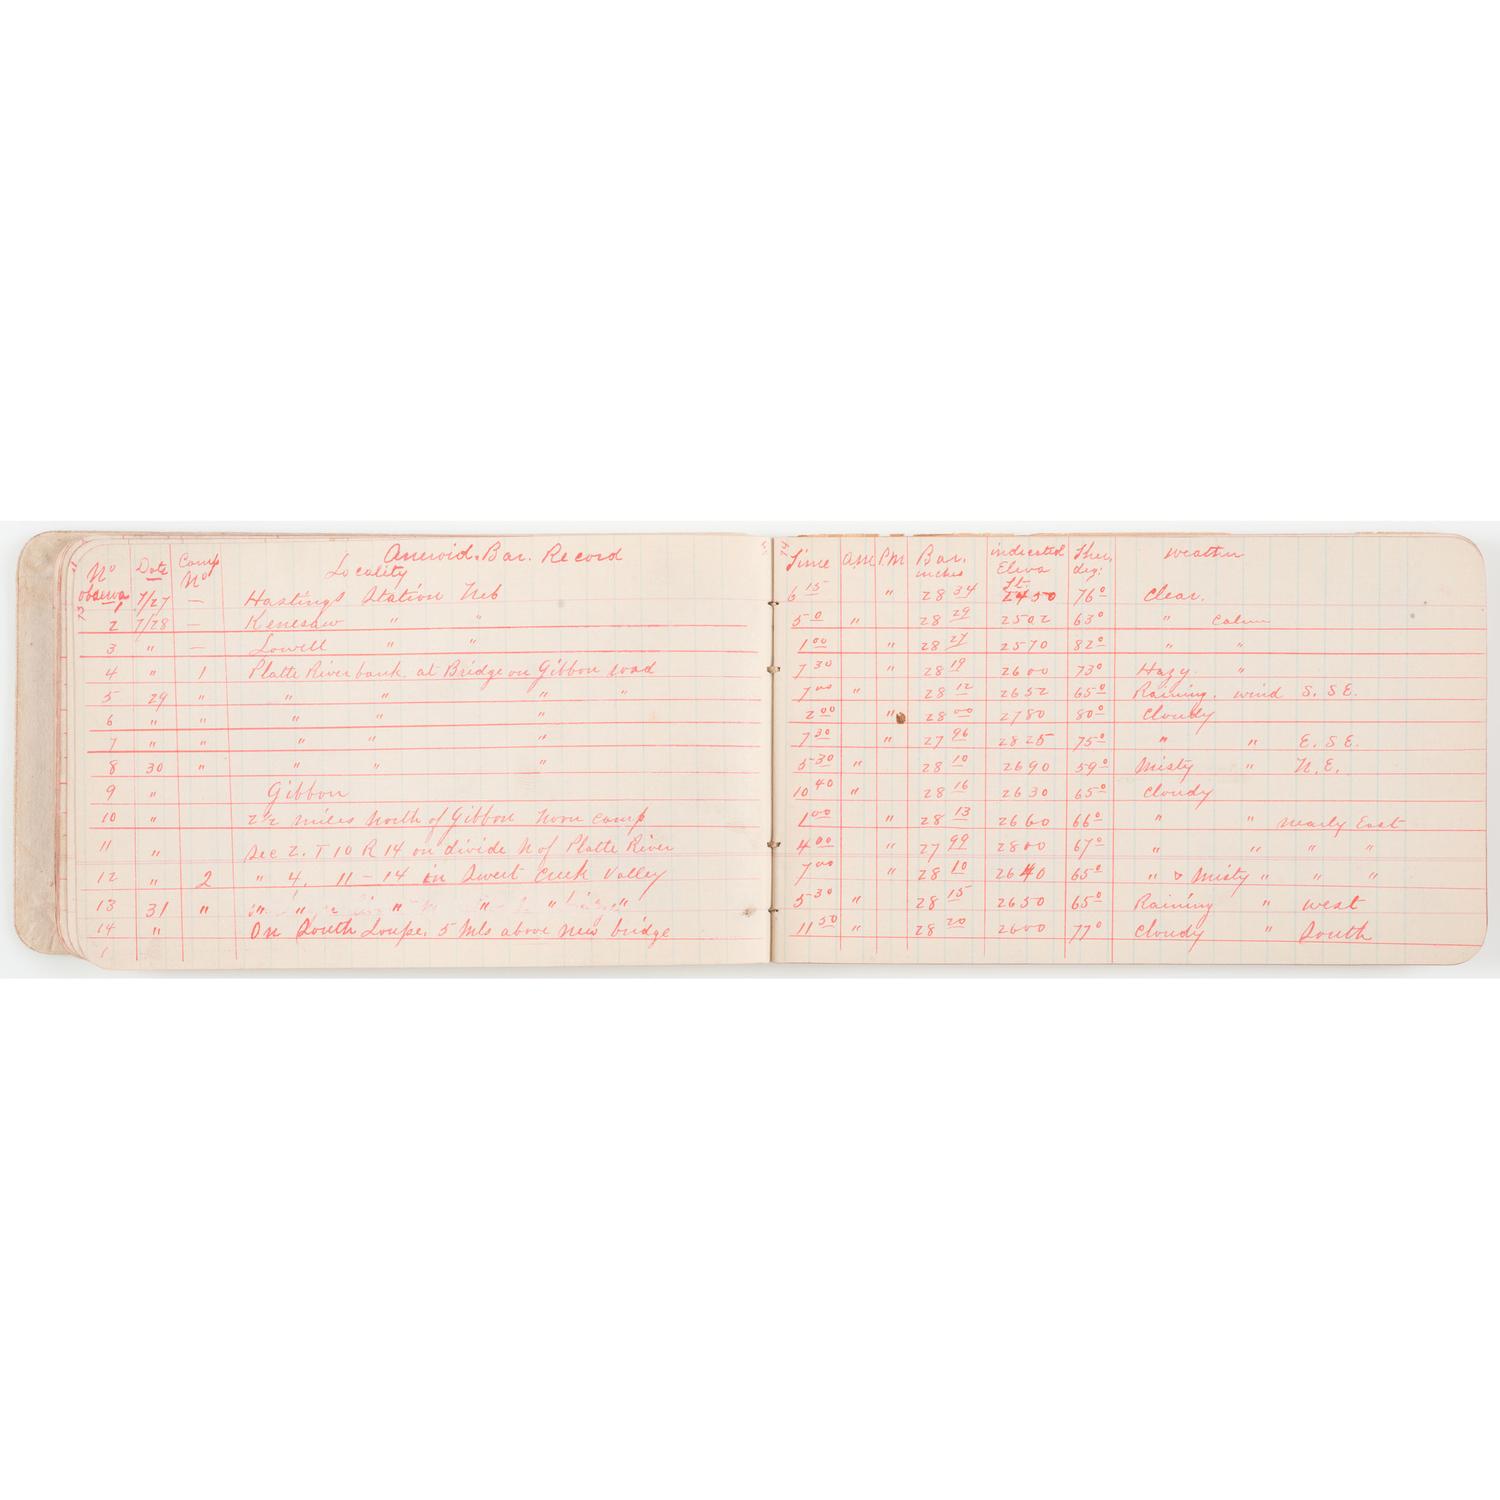 Aneroid. Bar. Record
No observa Date Camp No Locality Time A.M P.M Bar. inches indicated Eleva ft. Ther, deg: Weather
1 7/27 — Hastings Station Neb 6 15 " 28 34 2450 76° Clear.
2 7/28 — Kenesaw " " 5 0 " 28 29 2502 63° " Calm
3 " — Lowell " " 1 00 " 28 27 2570 82° " "
4 " 1 Platte River bank at Bridge on Gibbon road 7 30 " 28 19 2600 73° Hazy. "
5 29 " " " " " 7 00 " 28 12 2652 65° Raining. wind S. S E.
6 " " " " " 2 00 " 28 00 2780 80° Cloudy
7 " " " " " 7 30 " 27 96 2825 75° " " E. S E.
8 30 " " " " 5 30 " 28 10 2690 59° Misty " N. E.
9 " Gibbon 10 40 " 28 16 2630 65° Cloudy
10 " 2½ miles North of Gibbon Noon camp 1 00 " 28 13 2660 66° " " nearly East
11 " Sec 2. T 10 R 14 on divide N of Platte River 4 00 " 27 99 2800 67° " " " "
12 " 2 " 4. 11 – 14 in Sweet Creek Valley 7 00 " 28 10 2640 65° " & Misty " " "
13 31 " " " " " " " 5 30 " 28 15 2650 65° Raining " West
14 " On South Loupe. 5 mls above new bridge 11 50 " 28 20 2600 77° Cloudy " South